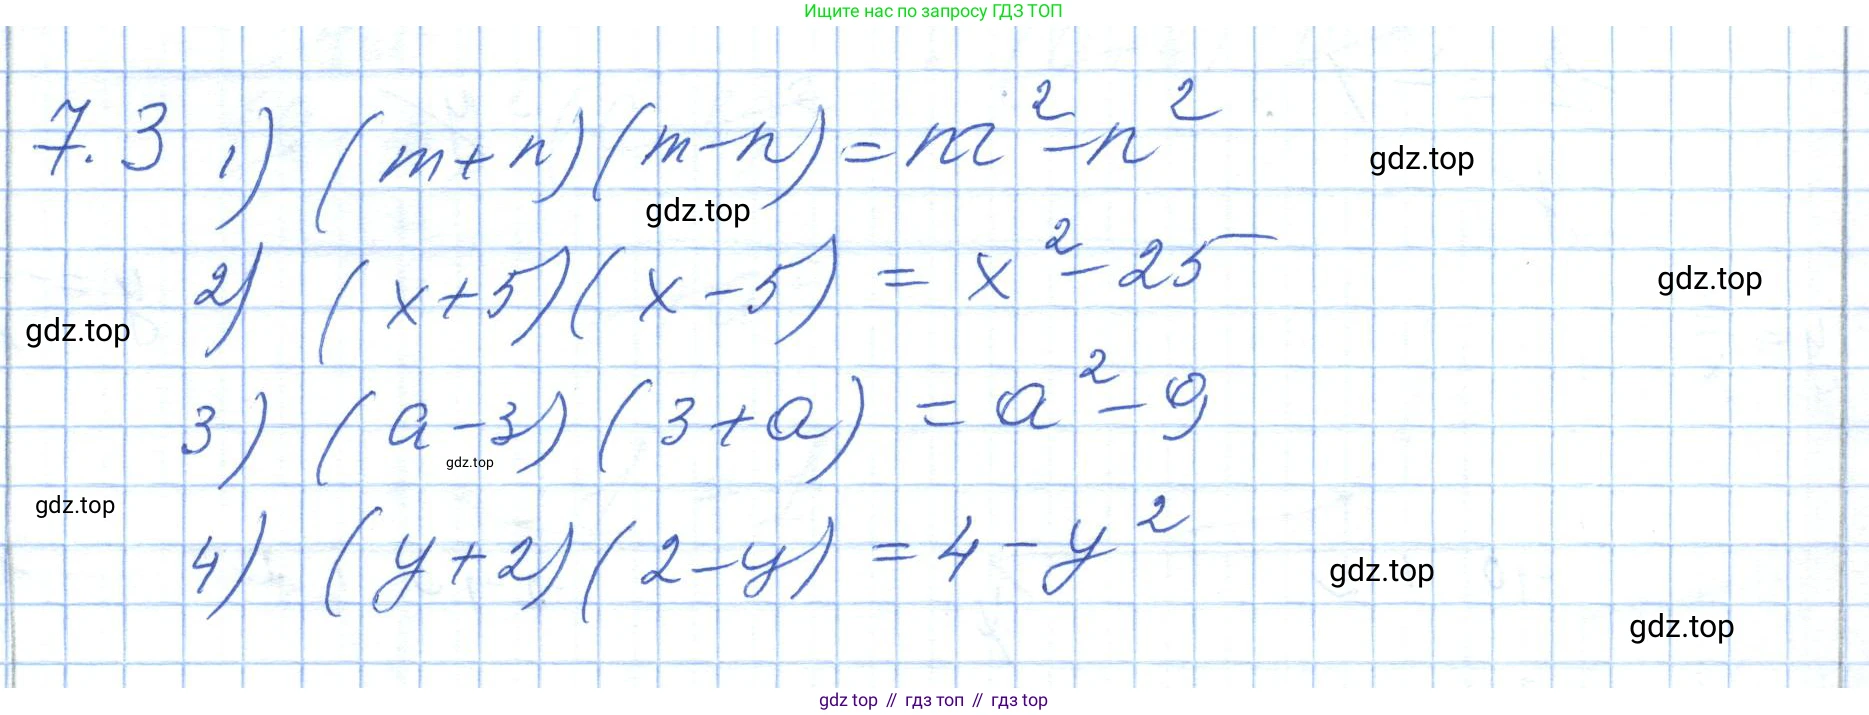 Ищите нас по запросу ГДЗ ТОП
7.3 1) (m+n)(m-n)=m²-n²
gdz.top
gdz.top
2) (x+5)(x-5) = x²-25
gdz.top
gdz.top
3) (a-3)(3+a) = a²-9
gdz.top
gdz.top
4) (y+2)(2-y) = 4-y²
gdz.top
gdz.top
gdz top // гдз топ // гдз top